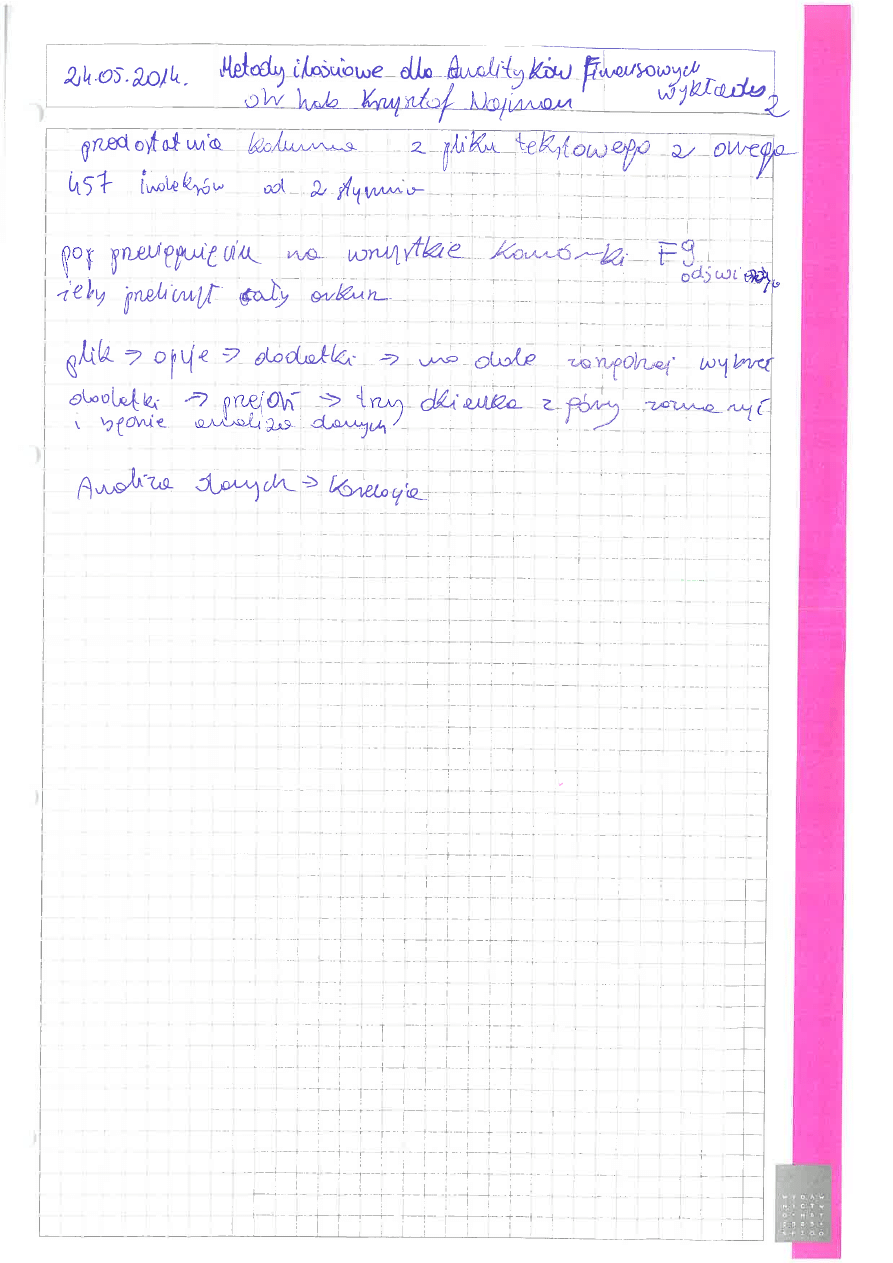 24.05.2014. Metody ilościowe dla Analityków Finansowych
dr hab Krzysztof Najman wykład 2
przedostatnia kolumna z pliku tekstowego z owego
457 indeksów od 2 stycznia
po przeciągnięciu na wszystkie komórki F9
odśwież
żeby przeliczył cały arkusz
plik → opcje → dodatki → na dole rozpocznij wybrać
dodatki → przejdź → trzy okienka z góry zaznaczyć
i będzie analiza danych
Analiza danych → Korelacja